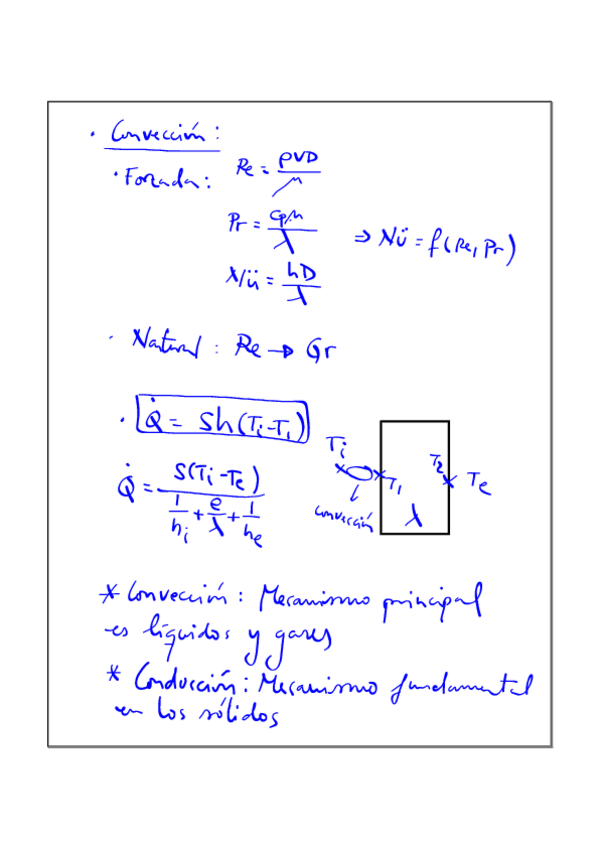 · Convección:
· Forzada: Re = ρVD/μ
Pr = Cpμ/λ ⇒ Nü = f(Re, Pr)
Nü = hD/λ
· Natural: Re → Gr
· Q̇ = Sh(Ti-T1)
Q̇ = S(Ti-Te) / (1/hi + e/λ + 1/he)
Ti T1 T2 Te
convección λ
* Convección: Mecanismo principal
es líquidos y gases
* Conducción: Mecanismo fundamental
en los sólidos